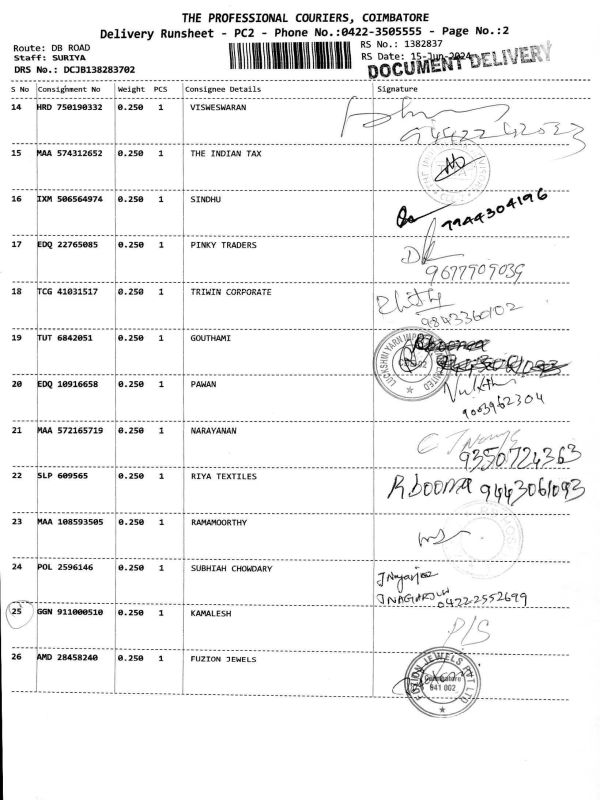 THE PROFESSIONAL COURIERS, COIMBATORE
Delivery Runsheet - PC2 - Phone No.:0422-3505555 - Page No.:2
Route: DB ROAD RS No.: 1382837
Staff: SURIYA RS Date: 15-Jun-2024
DRS No.: DCJB138283702 DOCUMENT DELIVERY
S No Consignment No Weight PCS Consignee Details Signature
14 HRD 750190332 0.250 1 VISWESWARAN
15 MAA 574312652 0.250 1 THE INDIAN TAX
16 IXM 506564974 0.250 1 SINDHU
7944304196
17 EDQ 22765085 0.250 1 PINKY TRADERS
9677909039
18 TCG 41031517 0.250 1 TRIWIN CORPORATE
9843360102
19 TUT 6842051 0.250 1 GOUTHAMI
20 EDQ 10916658 0.250 1 PAWAN
9003962304
21 MAA 572165719 0.250 1 NARAYANAN
9350724363
22 SLP 609565 0.250 1 RIYA TEXTILES
Rbooma 9443061093
23 MAA 108593505 0.250 1 RAMAMOORTHY
24 POL 2596146 0.250 1 SUBHIAH CHOWDARY
0422-2552699
25 GGN 911000510 0.250 1 KAMALESH
P/S
26 AMD 28458240 0.250 1 FUZION JEWELS
FUZION JEWELS PVT LTD
Coimbatore
641 002